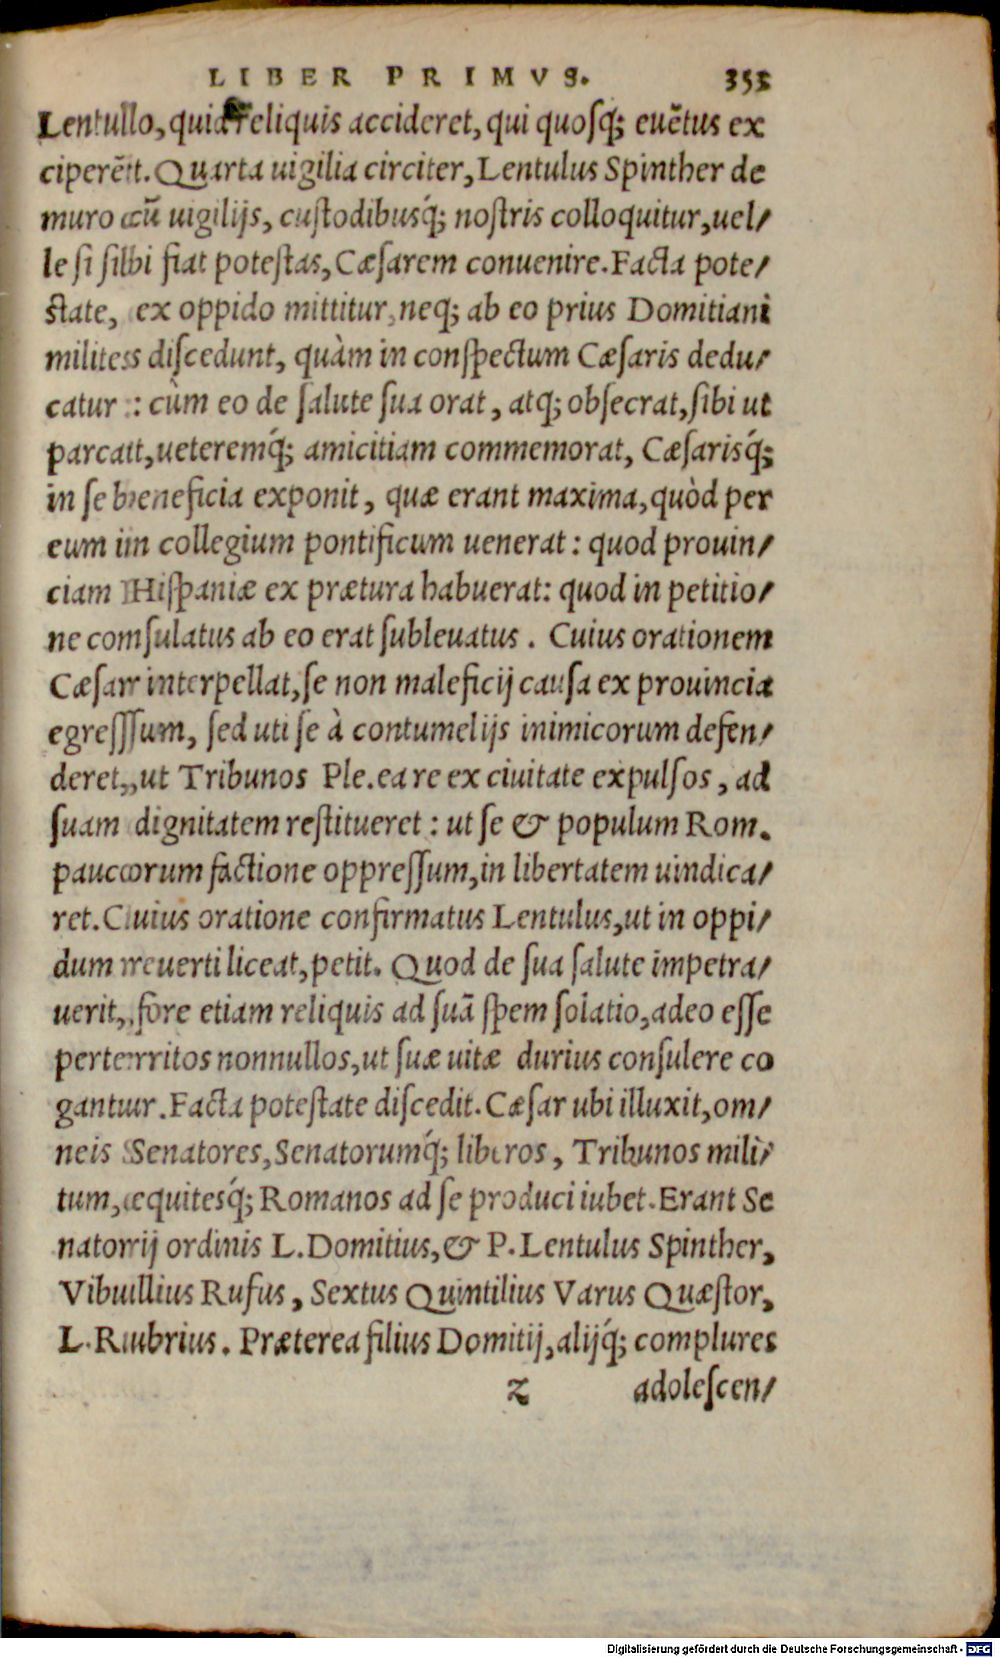 LIBER PRIMVS. 353
Lentulo, quid reliquis accideret, qui quosq; euẽtus ex
ciperẽt. Quarta uigilia circiter, Lentulus Spinther de
muro cũ uigilijs, custodibusq́; nostris colloquitur, uel/
le si sibi fiat potestas, Cæsarem conuenire. Facta pote/
state, ex oppido mittitur, neq; ab eo prius Domitiani
milites discedunt, quàm in conspectum Cæsaris dedu/
catur: cùm eo de salute sua orat, atq; obsecrat, sibi ut
parcat, ueteremq́; amicitiam commemorat, Cæsarisq́;
in se beneficia exponit, quæ erant maxima, quòd per
eum in collegium pontificum uenerat: quod prouin/
ciam Hispaniæ ex prætura habuerat: quod in petitio/
ne consulatus ab eo erat subleuatus. Cuius orationem
Cæsar interpellat, se non maleficij causa ex prouincia
egressum, sed uti se à contumelijs inimicorum defen/
deret, ut Tribunos Ple. ea re ex ciuitate expulsos, ad
suam dignitatem restitueret: ut se & populum Rom.
paucorum factione oppressum, in libertatem uindica/
ret. Cuius oratione confirmatus Lentulus, ut in oppi/
dum reuerti liceat, petit. Quod de sua salute impetra/
uerit, fore etiam reliquis ad suã spem solatio, adeo esse
perterritos nonnullos, ut suæ uitæ durius consulere co
gantur. Facta potestate discedit. Cæsar ubi illuxit, om/
neis Senatores, Senatorumq́; liberos, Tribunos mili/
tum, equitesq́; Romanos ad se produci iubet. Erant Se
natorij ordinis L. Domitius, & P. Lentulus Spinther,
Vibullius Rufus, Sextus Quintilius Varus Quæstor,
L. Rubrius. Præterea filius Domitij, alijq́; complures
z adolescen/
Digitalisierung gefördert durch die Deutsche Forschungsgemeinschaft - DFG